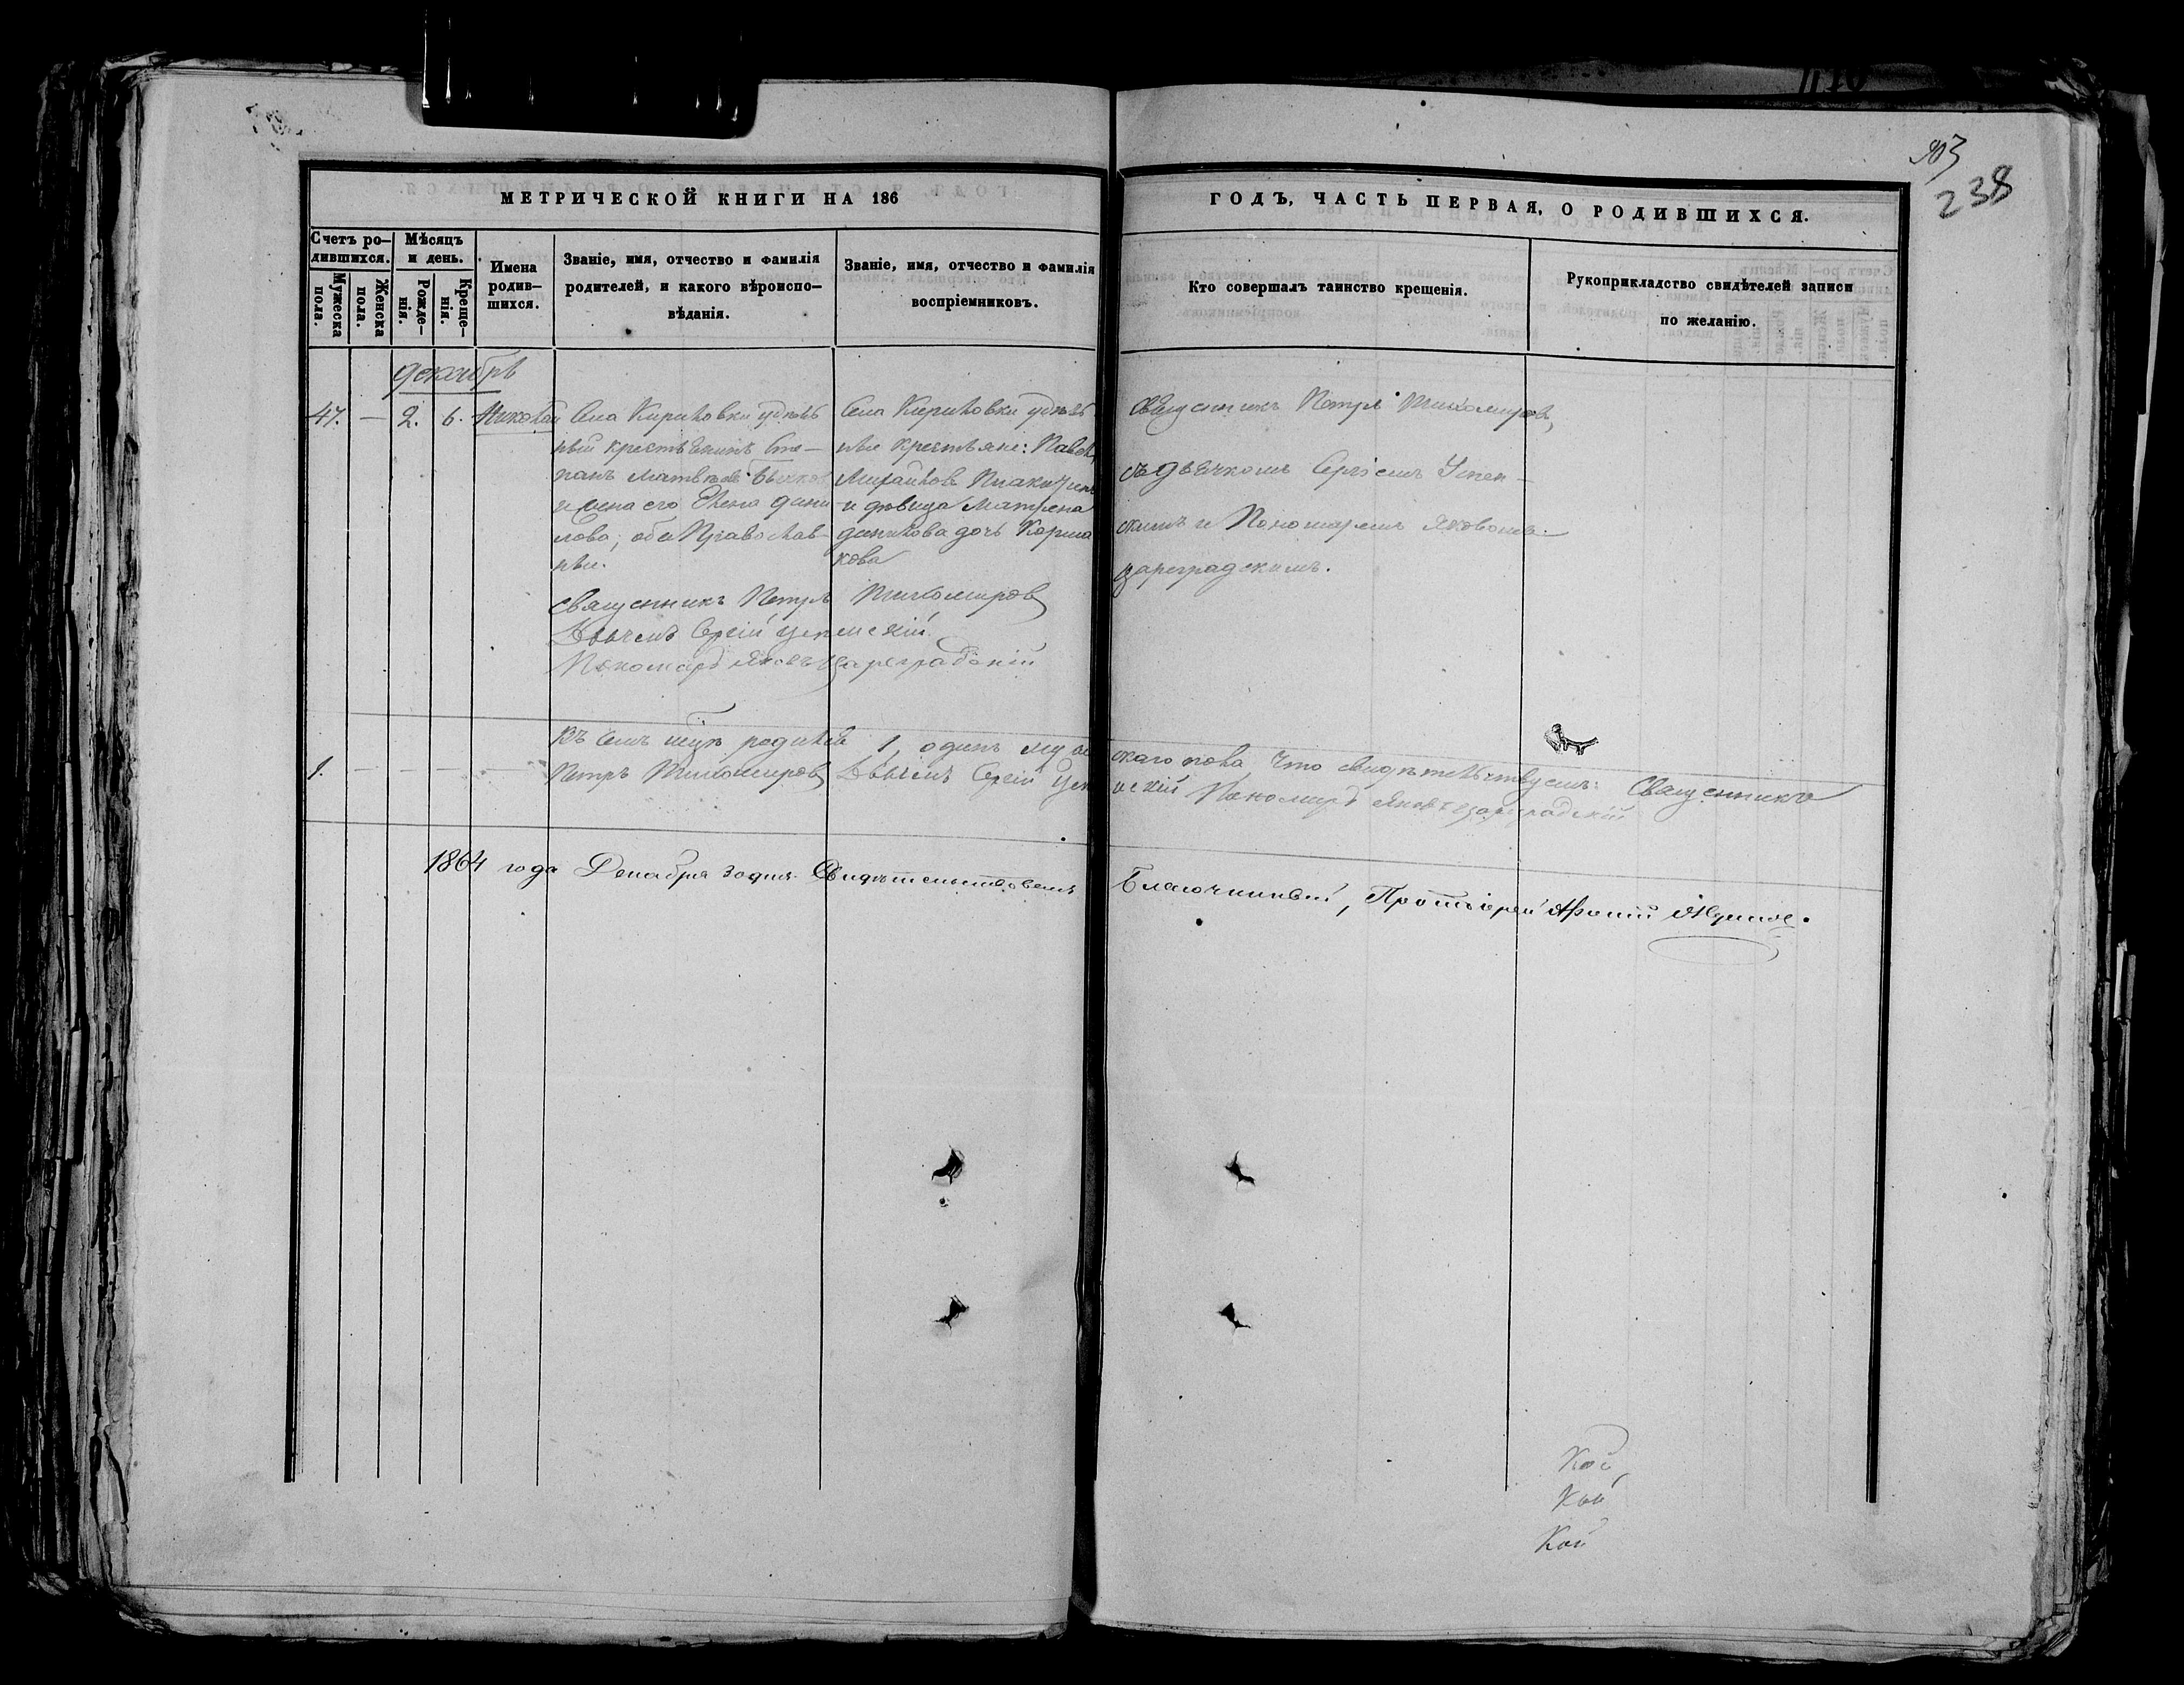 238
МЕТРИЧЕСКОЙ КНИГИ НА 186
ГОДЪ, ЧАСТЬ ПЕРВАЯ, О РОДИВШИХСЯ.
Счетъ ро-
дившихся.
Мужеска
пола.
Женска
пола.
Мѣсяцъ
и день.
Рожде-
нія.
Креще-
нія.
Имена
родив-
шихся.
Званіе, имя, отчество и фамилія
родителей, и какого вѣроиспо-
вѣданія.
Званіе, имя, отчество и фамилія
воспріемниковъ.
Кто совершалъ таинство крещенія.
Рукоприкладство свидѣтелей записи
по желанію.
декабрь
47. — 2. 6. Николай
Села Кириловки удѣль
ный крестьянинъ Сте-
панъ Матвѣевъ
и жена его Елена Дани
лова, оба Православ-
ные.
Села Кириловки удѣль
ные крестьяне: Павелъ
Михайловъ
и дѣвица Матрена
Данилова дочь Корша
кова
Священникъ Петръ Тихомировъ,
съ дьячкомъ Сергіемъ Успен-
скимъ и Пономаремъ Яковомъ
Цареградскимъ.
Священникъ Петръ Тихомировъ
Дьячекъ Сергій Успенскій
Пономарь Яковъ Цареградскій
1. — — — —
Въ семъ м-цѣ родился 1, одинъ мужескаго пола, Что свидѣтельствуемъ: Священникъ
Петръ Тихомировъ Дьячекъ Сергій Успенскій Пономарь Яковъ Цареградскій
1864 года Декабря 30 дня. Свидѣтельствовалъ Благочинный, Протоіерей
Кой
Кой
Кой